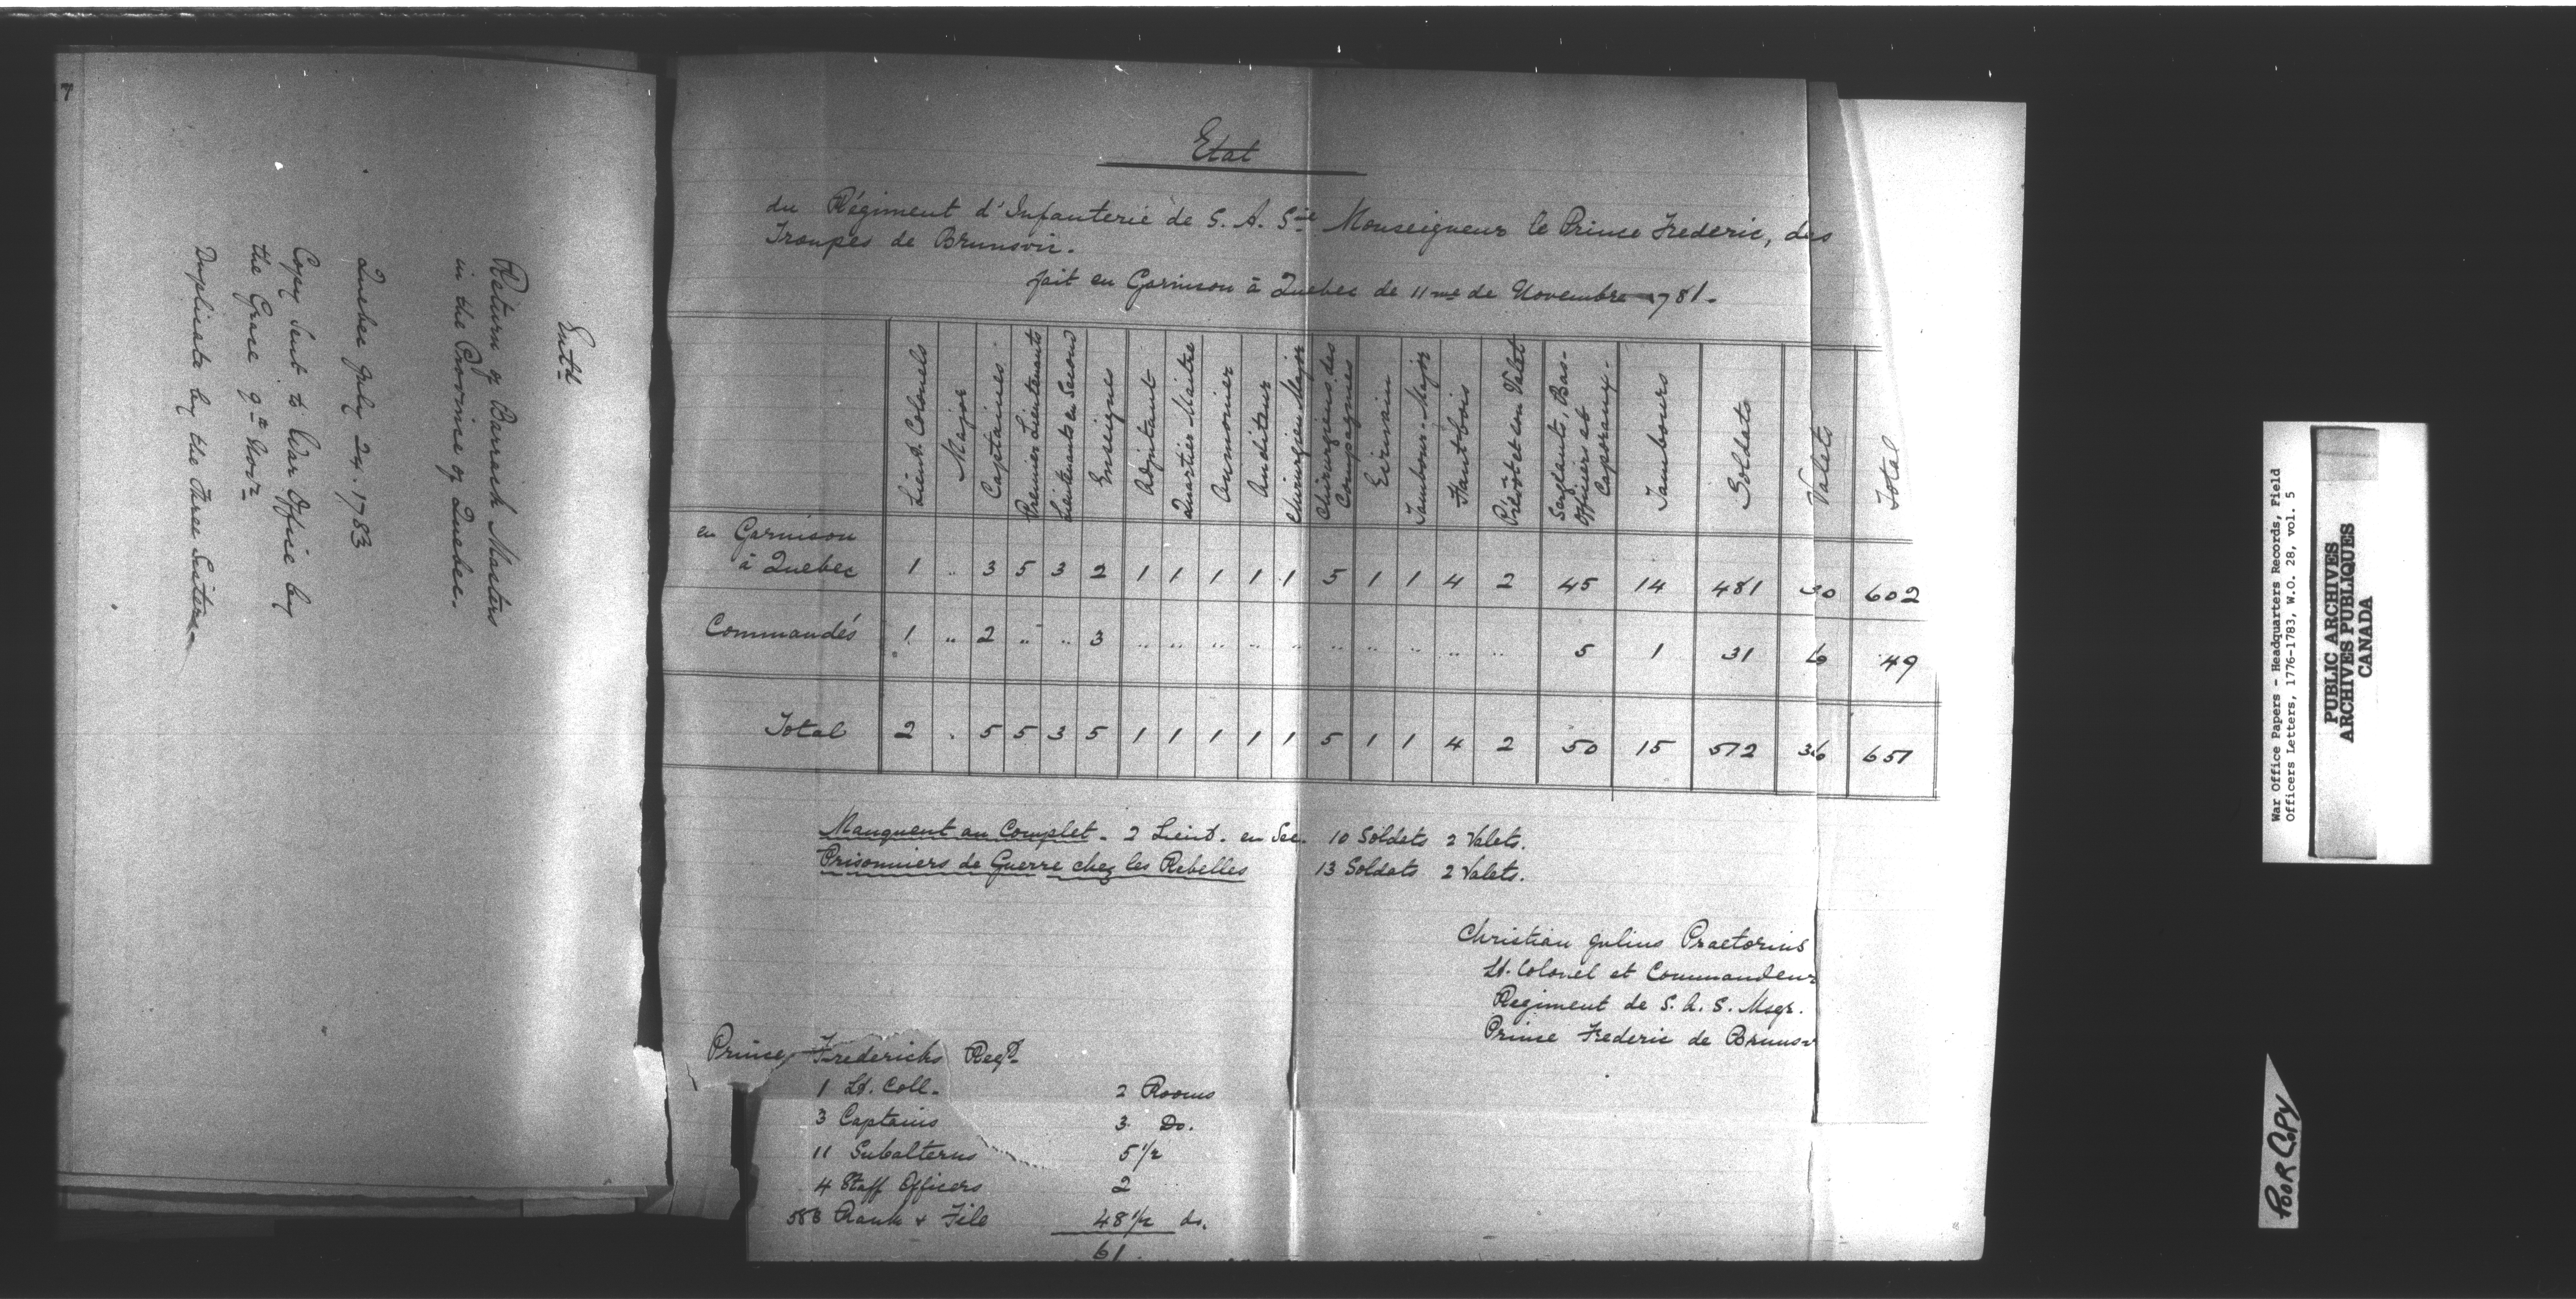 7
Entd
Return of Barrack Masters
in the Province of Quebec.
Quebec July 24. 1783
Copy Sent to War Office by
the Grace 9th Novr
Duplicate by the Three Sisters
Etat
du Régiment d'Infanterie de S. A. Sie Monseigneur le Prince Frederic, des
Troupes de Brunsvic.
fait en Garnison à Quebec de 11me de Novembre 1781.
Lieut. Colonels
Major
Captaines
Premier Lieutenants
Lieutenants en Second
Enseignes
Adjutant
Quartier-Maitre
Aumonier
Auditeur
Chirurgien Major
Chirurgiens des Compagnies
Ecrivain
Tambour-Major
Hautbois
Prévôt et son Valet
Sergeants, Bas-Officiers et Caporaux
Tambours
Soldats
Valets
Total
en Garnison
à Quebec 1 .. 3 5 3 2 1 1 1 1 1 5 1 1 4 2 45 14 481 30 602
Commandés 1 .. 2 .. .. 3 .. .. .. .. .. .. .. .. .. .. 5 1 31 6 49
Total 2 . 5 5 3 5 1 1 1 1 1 5 1 1 4 2 50 15 512 36 651
Manquent au Complet - 2 Lieut. en Sec. 10 Soldats 2 Valets.
Prisonniers de Guerre chez les Rebelles 13 Soldats 2 Valets.
Christian Julius Praetorius
Lt. Colonel et Commandeur
Regiment de S. A. S. Msgr.
Prince Frederic de Brunsv
Prince Fredericks Regt.
1 Lt. Coll. 2 Rooms
3 Captains 3 Do.
11 Subalterns 5 1/2
4 Staff Officers 2
Rank & File 48 1/2 do.
61
War Office Papers - Headquarters Records, Field
Officers Letters, 1776-1783, W.O. 28, vol. 5
PUBLIC ARCHIVES
ARCHIVES PUBLIQUES
CANADA
POOR COPY